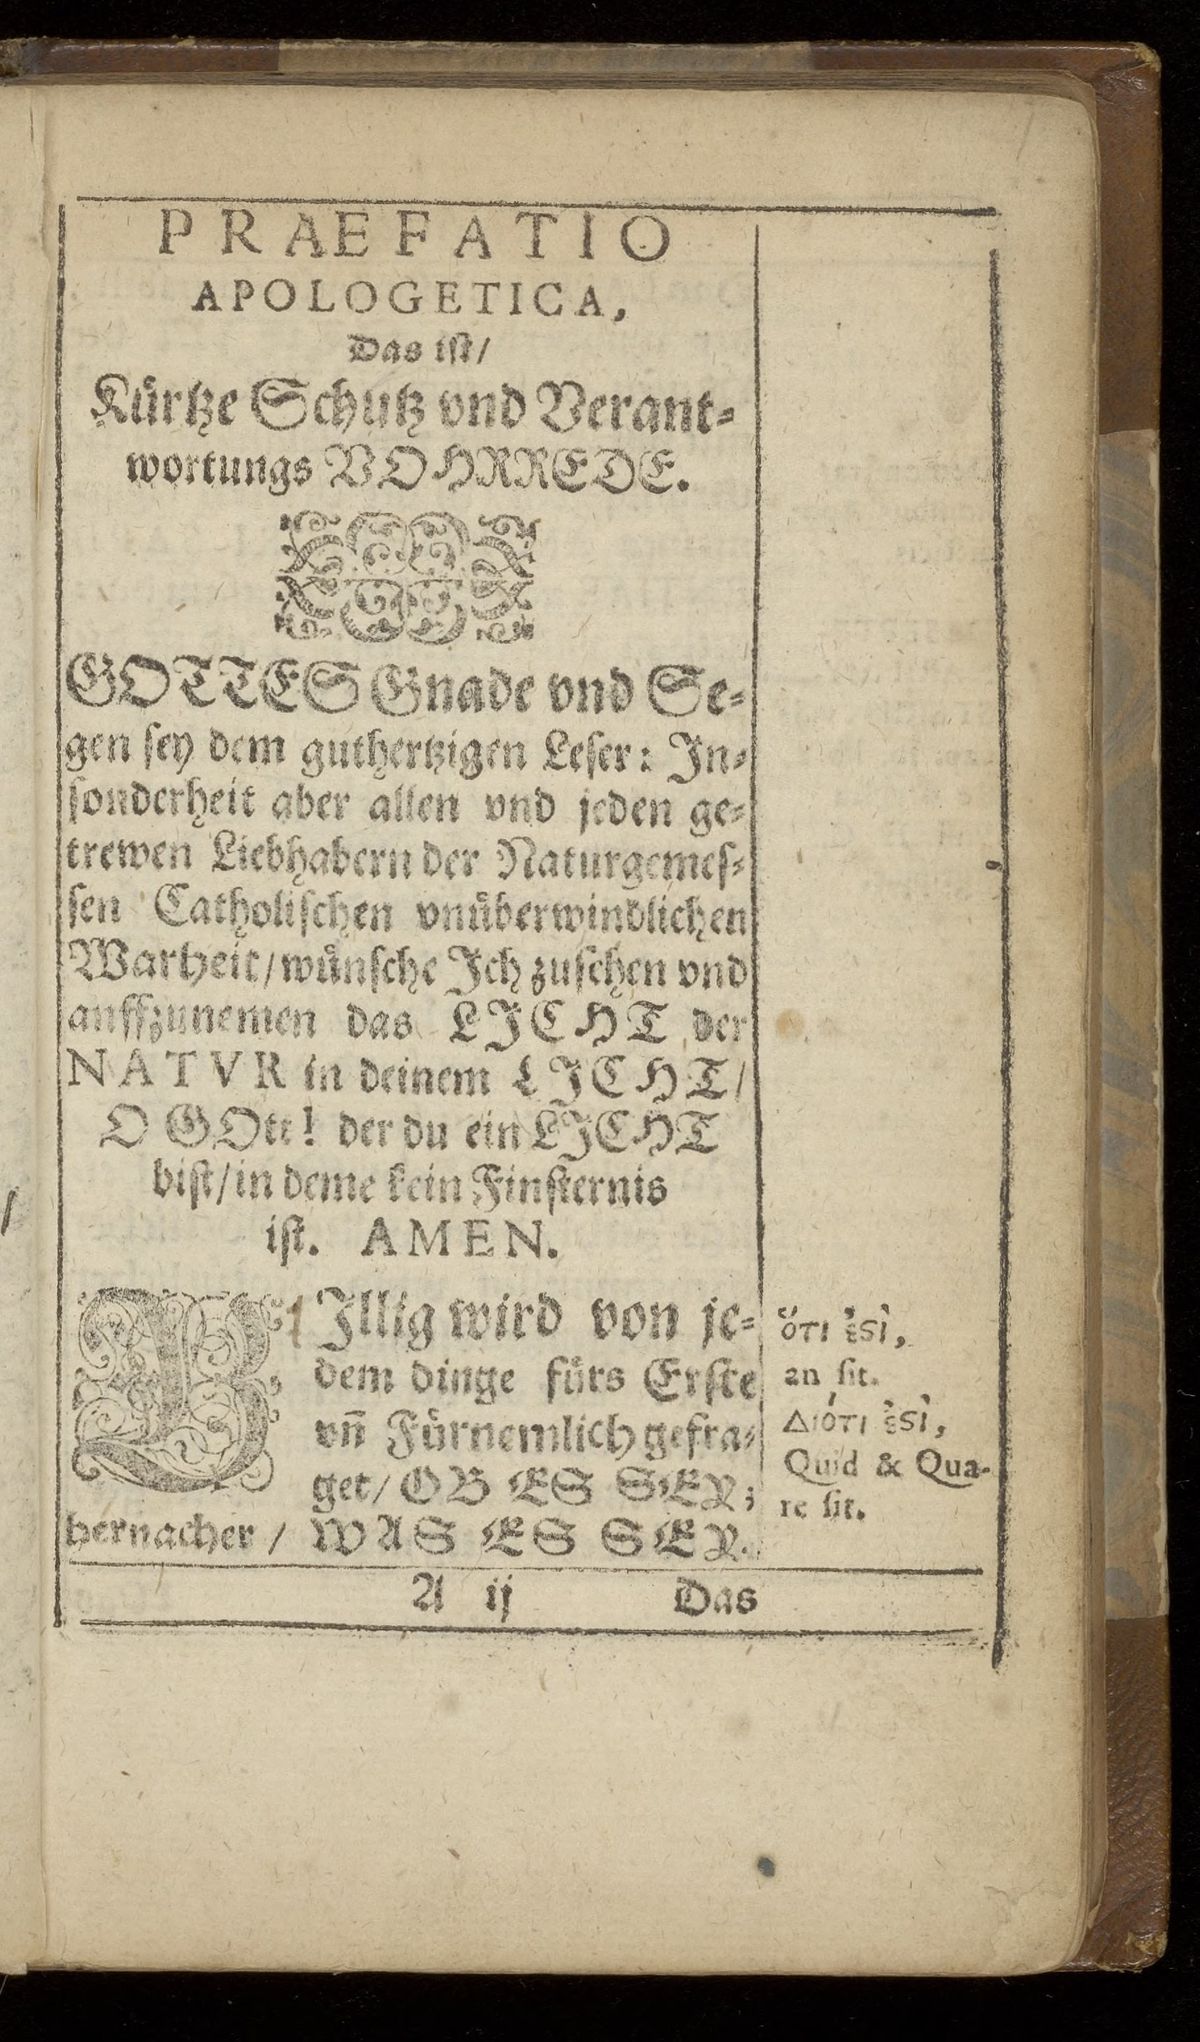 PRAEFATIO
APOLOGETICA,
Das iſt/
Kuͤrtze Schutz vnd Verant⸗
wortungs VOHRREDE.
GOTTES Gnade vnd Se⸗
gen ſey dem guthertzigen Leſer: In⸗
ſonderheit aber allen vnd jeden ge⸗
trewen Liebhabern der Naturgemeſ⸗
ſen Catholiſchen vnuͤberwindlichen
Warheit/ wuͤnſche Ich zuſehen vnd
auffzunemen das LICHT der
NATVR in deinem LICHT/
O GOtt! der du ein LICHT
biſt/ in deme kein Finſternis
iſt. AMEN.
BIllig wird von je⸗
dem dinge fuͤrs Erſte
vn̄ Fuͤrnemlich gefra⸗
get/ OB ES SEY;
hernacher / WAS ES SEY.
ὅτι ἐϛὶ,
an ſit.
Διότι ἐϛὶ,
Quid & Qua-
re ſit.
A ij Das